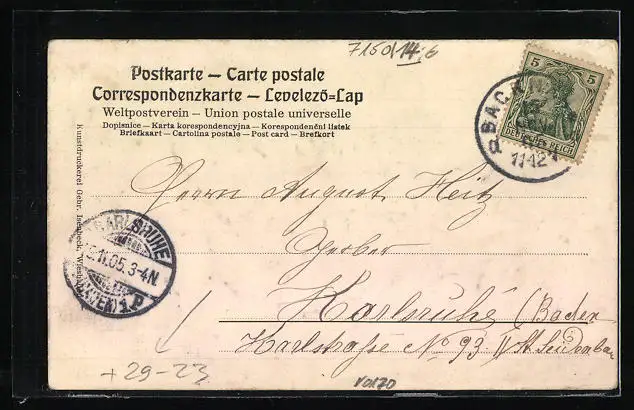 7150/14.6
Postkarte — Carte postale
Correspondenzkarte — Levelező=Lap
Weltpostverein — Union postale universelle
Dopisnice — Karta korespondencyjna — Korespondenční listek
Briefkaart — Cartolina postale — Post card — Brefkort
5 5
DEUTSCHES REICH
11-12
Kunstdruckerei Gebr. Isenbeck, Wiesbaden
Herrn August Heitz
Gerber
KARLSRUHE
11.05. 3-4N
Karlsruhe (Baden
Karlstraße No 93 II St.
+29-23
V0170